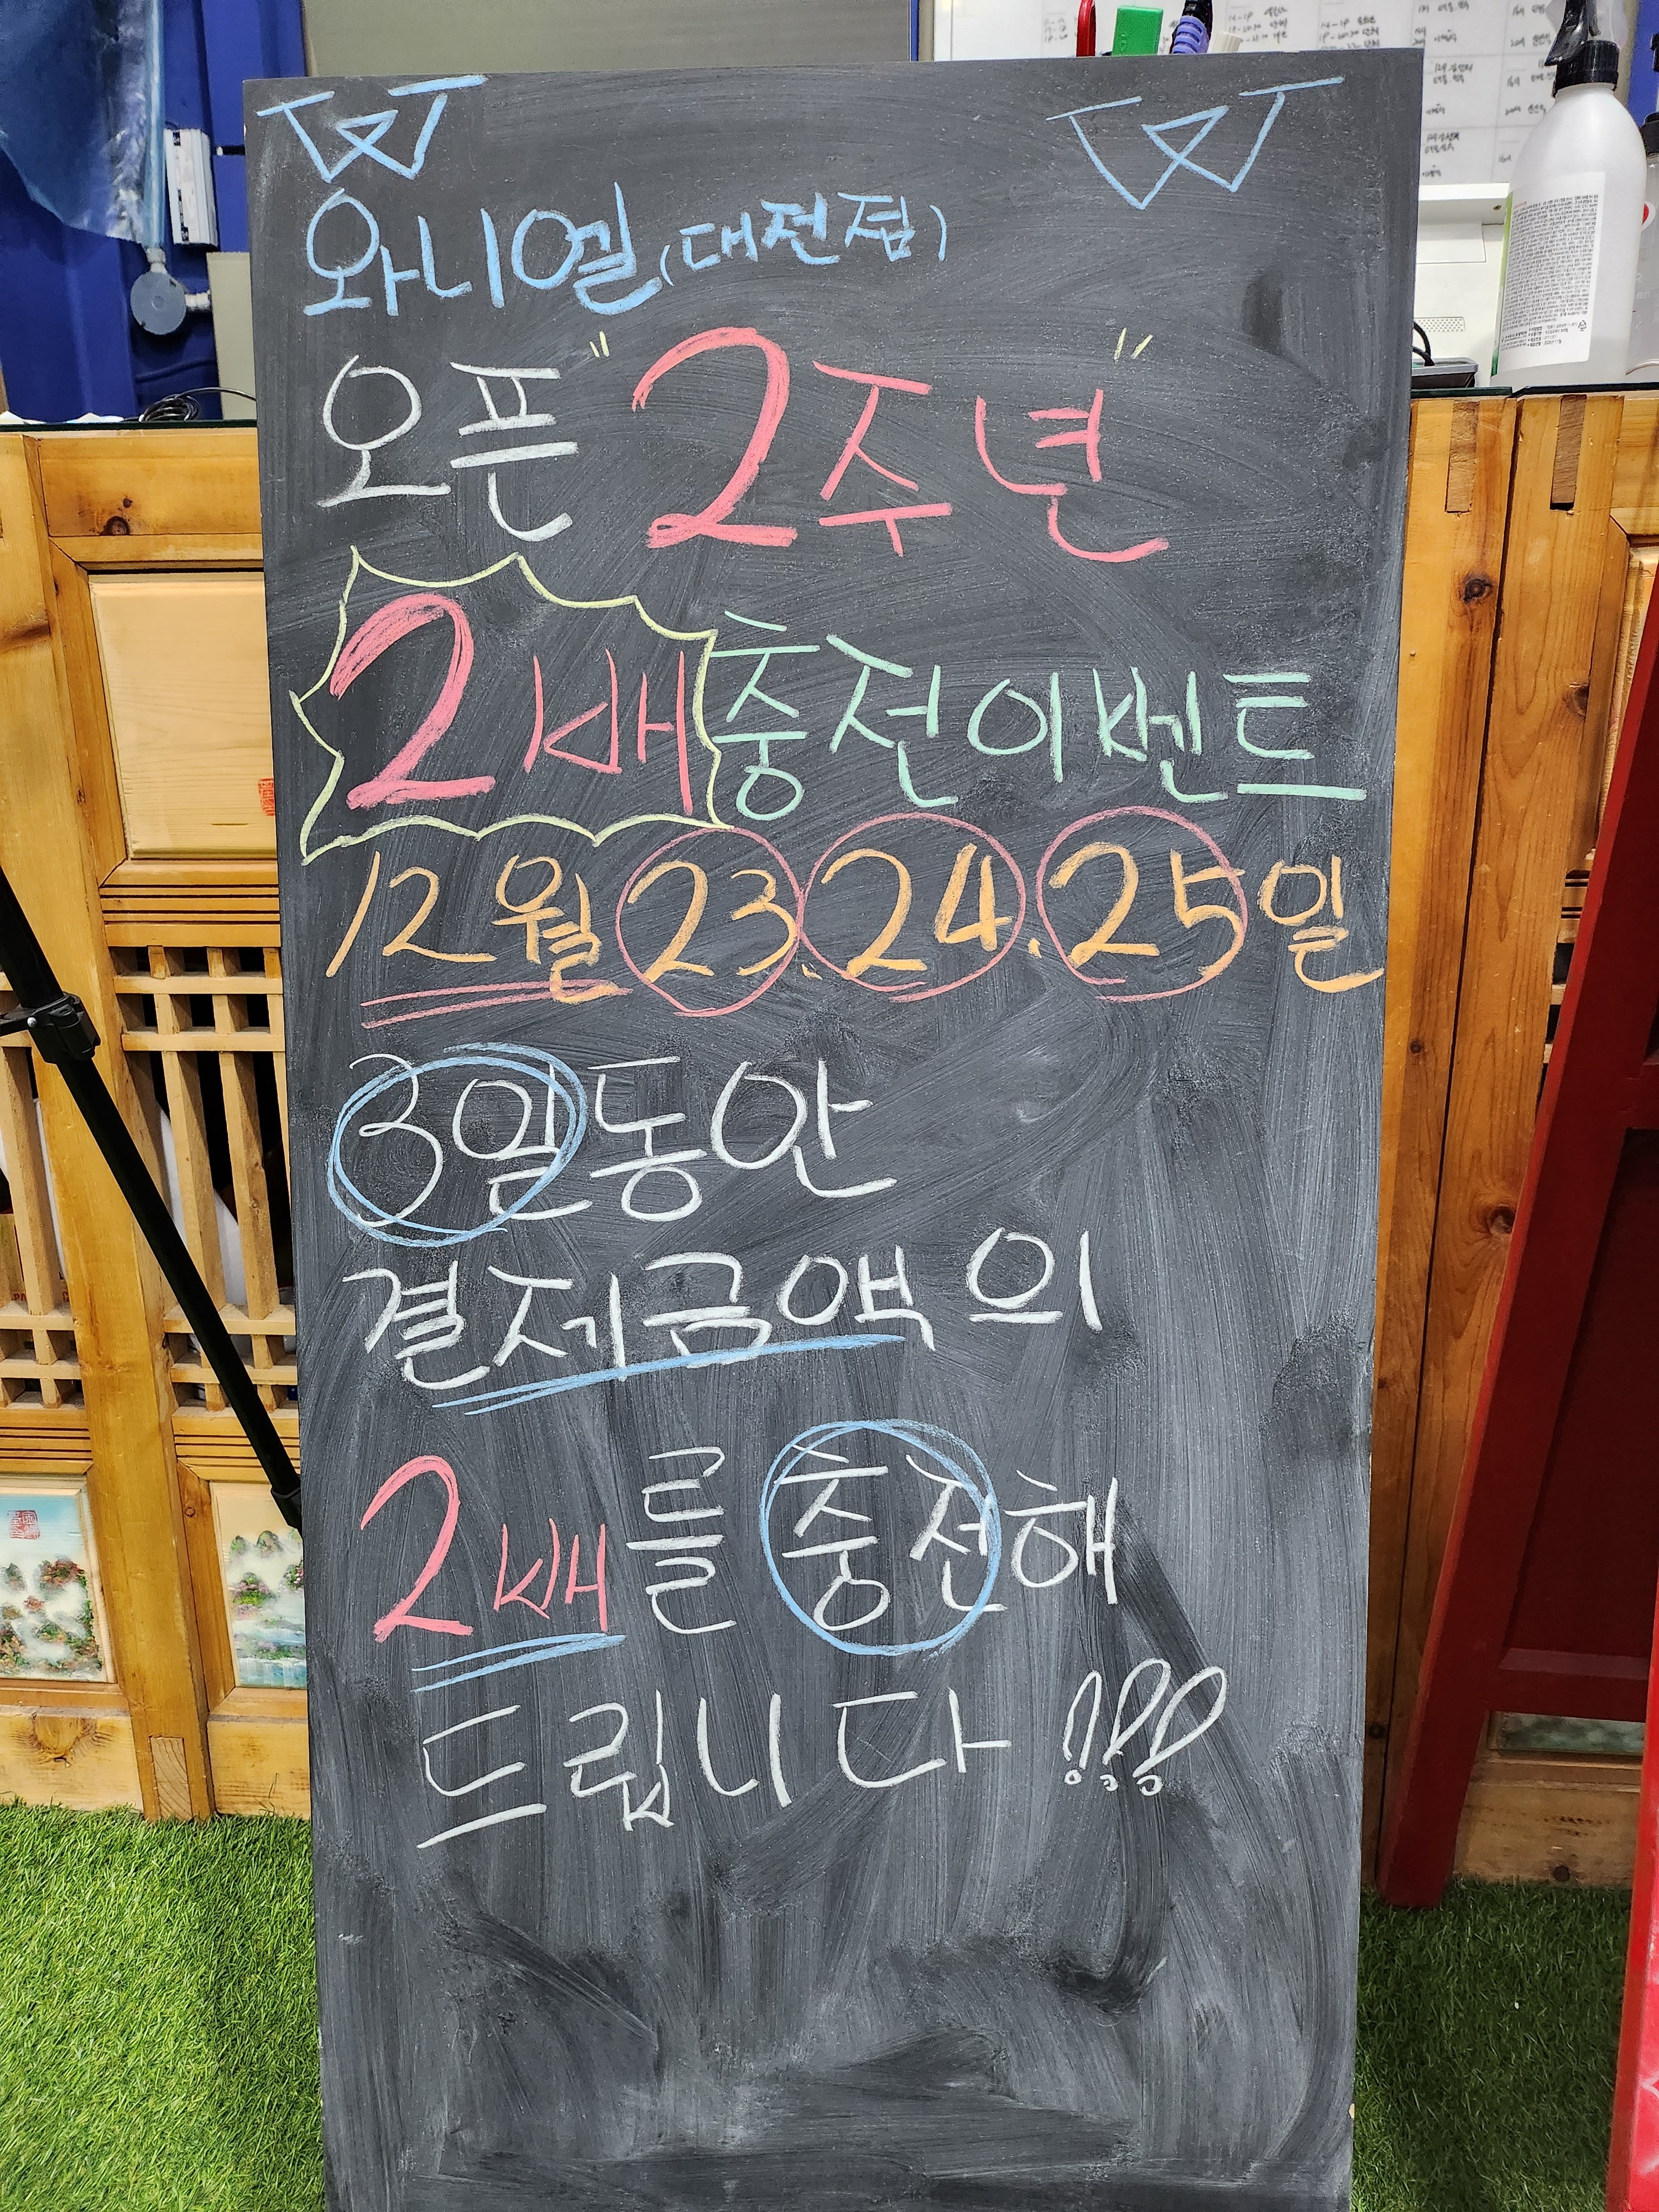 W W
와니엘(대전점)
오픈 "2주년"
2배충전이벤트
12월 23. 24. 25일
3일동안
결제금액의
2배를 충전해
드립니다!!!